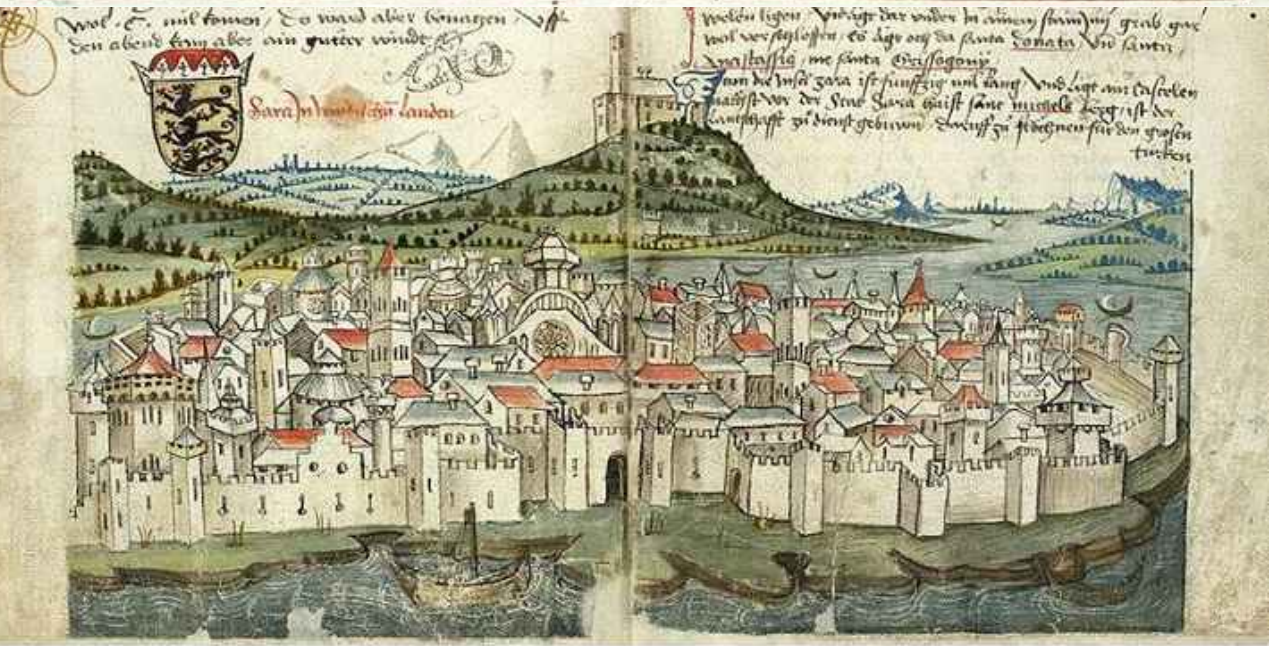 wol . C . mil komen / Do ward aber bonatzen / Uff
den abend kam aber ain gutter windt
Sara in windischen landen
ligen . Und ligt dar under in ainem grab gar
wol verschlossen . Es ligt och da santa Donata . Und santa
Anastassia , me santa Grissogony
die Insel zara ist funffzig mil lang Und ligt ain Castelen
nachst vor der Stat Zara haist sant michels berg , ist der
lantschafft zu dienst gebuwen . daruff zu für den grosen
turken